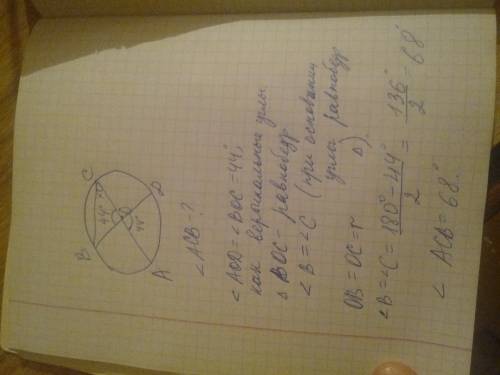 C
B
44°
O
44°
D
A
∠ACB-?
∠AOD=∠BOC=44°,
как вертикальные углы.
△ BOC- равнобедр
∠B=∠C (при основании
углы равнобедр
△).
OB=OC=r
∠B=∠C= 180°-44° / 2 = 136° / 2 = 68°
∠ ACB=68°.